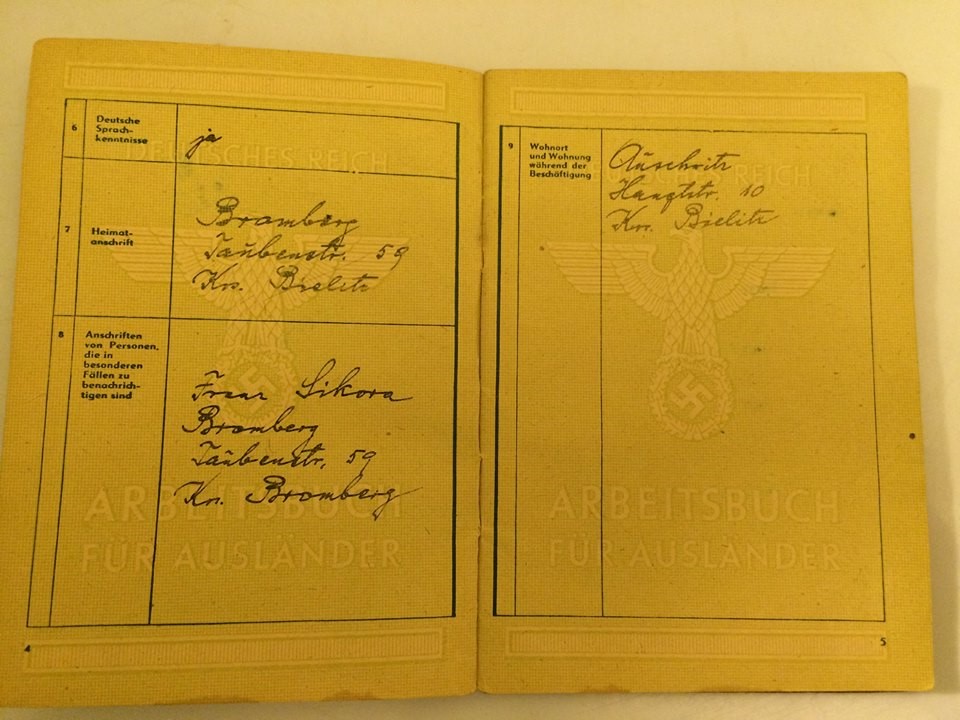 6
Deutsche
Sprach-
kenntnisse
ja
DEUTSCHES REICH
7
Heimat-
anschrift
Bromberg
Taubenstr. 59
Krs. Bielitz
8
Anschriften
von Personen,
die in
besonderen
Fällen zu
benachrich-
tigen sind
Franz Sikora
Bromberg
Taubenstr. 59
Kr. Bromberg
ARBEITSBUCH
FÜR AUSLÄNDER
4
9
Wohnort
und Wohnung
während der
Beschäftigung
Auschwitz
Hauptstr. 10
Krs. Bielitz
DEUTSCHES REICH
ARBEITSBUCH
FÜR AUSLÄNDER
5